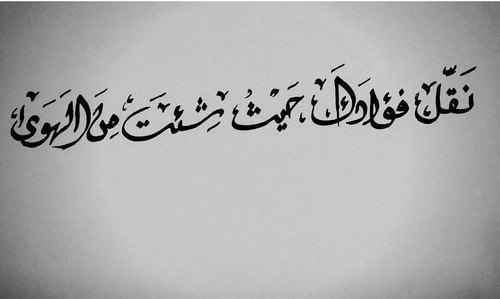 نَقّل فؤادكَ حَيْثُ شِئتَ مِنَ الهَوىٰ